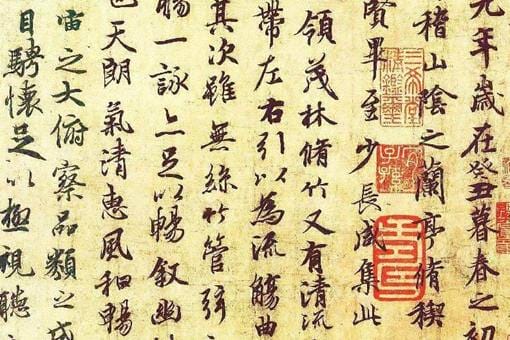 九年歲在癸丑暮春之初
稽山陰之蘭亭脩稧
賢畢至少長咸集此
領茂林脩竹又有清流
帶左右引以為流觴曲
其次雖無絲竹管弦
觴一詠亦足以暢叙幽
也天朗氣清惠風和暢
宙之大俯察品類之盛
目騁懷足以極視聽
三希堂精鑑璽
宜子孫